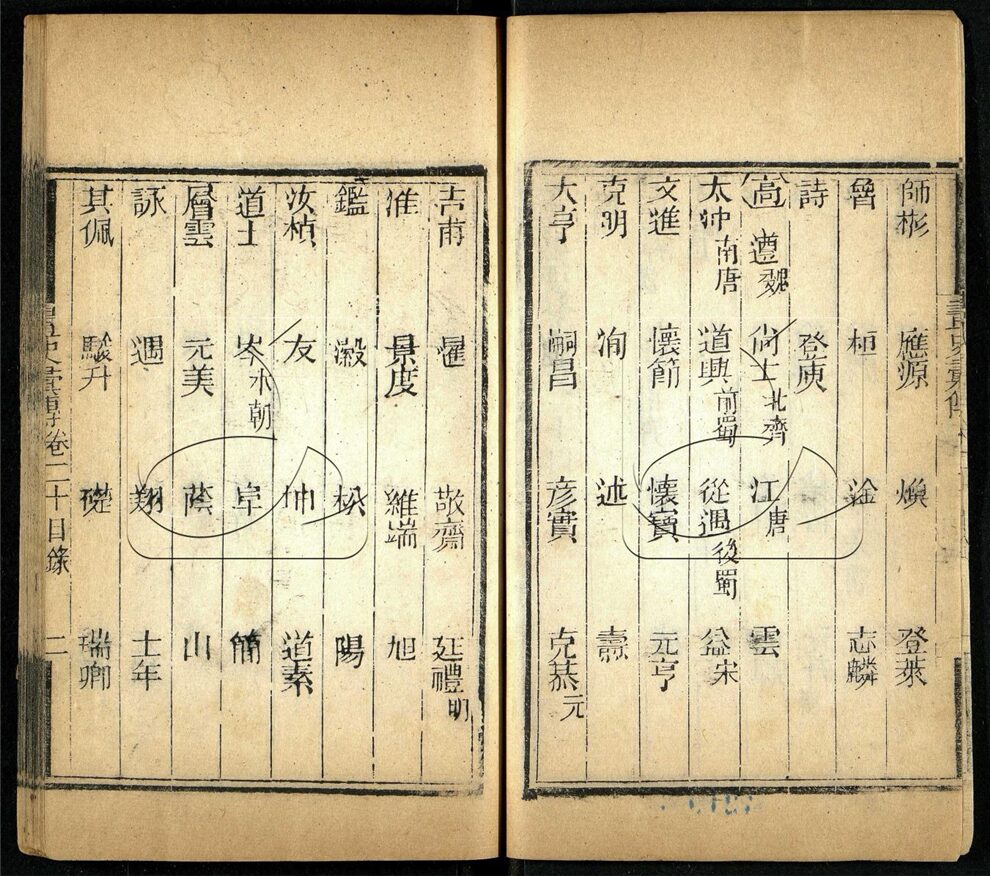 師彬 應源 煥 登萊
曾 桓 淦 志麟
詩 登庾
高 遵魏 尚士北齊 江唐 雲
太沖南唐 道興前蜀 從遇後蜀 益宋
文進 懷節 懷寶 元亨
克明 洵 述 壽
大亨 嗣昌 彥寶 克恭元
吉甫 燿 敬齋 延禮明
淮 景度 維端 旭
鑑 瀔 松 陽
汝楨 友 仲 道素
道士 岑水朝 阜 簡
層雲 元美 蔭 山
詠 遇 翔 士年
其佩 駿升 瑞卿
畫史彙傳卷二十目錄 二